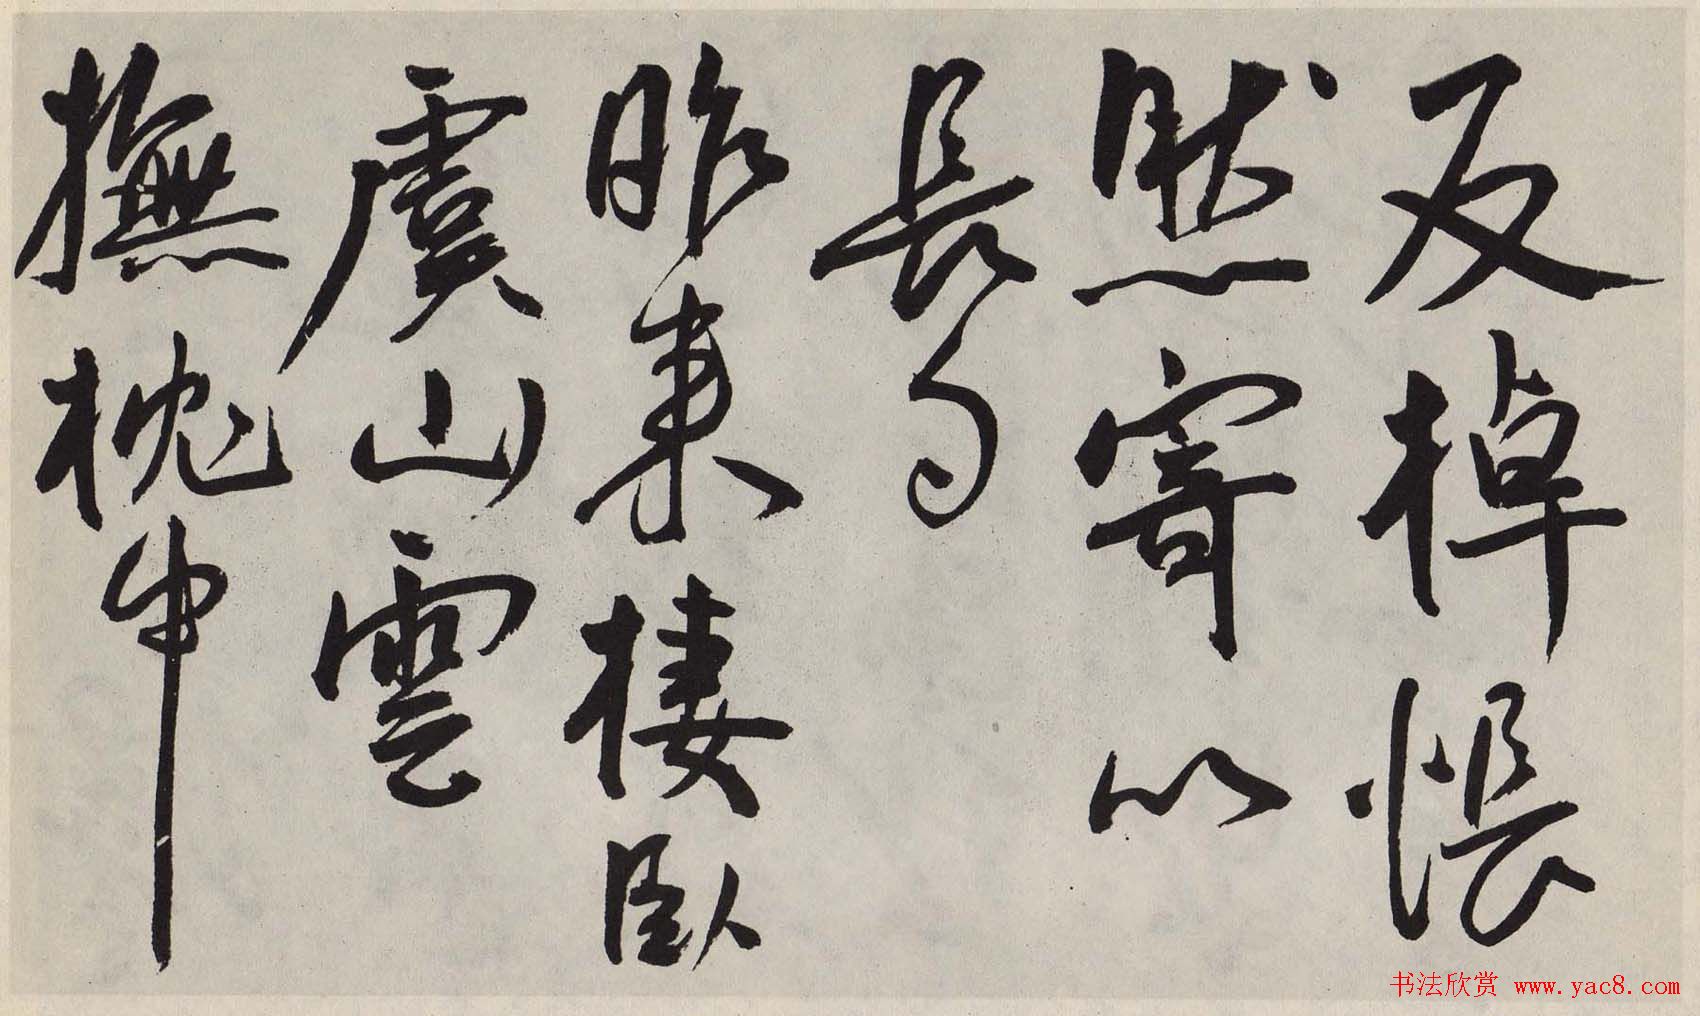 反棹悵
然寄以
長句
昨來棲臥
虞山雲
撫枕申
书法欣赏 www.yac8.com